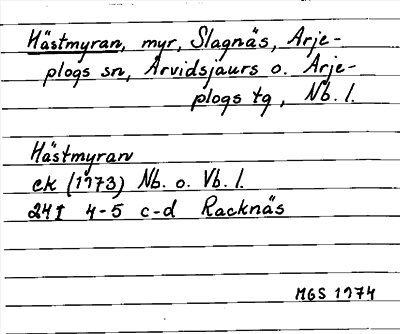 Hästmyran, myr, Slagnäs, Arje-
plogs sn, Arvidsjaurs o. Arje-
plogs tg, Nb. l.
Hästmyran
ek (1973) Nb. o. Vb. l.
24I 4-5 c-d Racknäs
MGS 1974